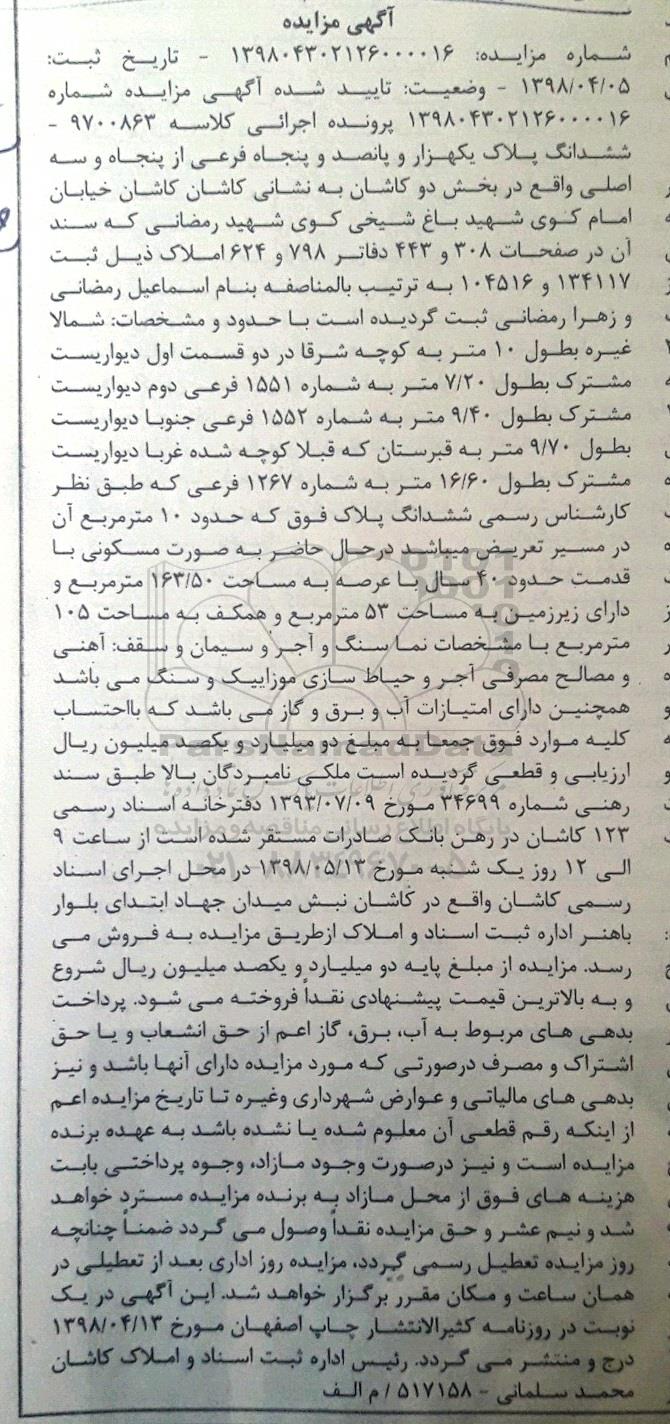 آگهی مزایده
شماره مزایده: ۱۳۹۸۰۴۳۰۲۱۲۶۰۰۰۰۱۶ - تاریخ ثبت:
۱۳۹۸/۰۴/۰۵ - وضعیت: تایید شده آگهی مزایده شماره
۱۳۹۸۰۴۳۰۲۱۲۶۰۰۰۰۱۶ پرونده اجرائی کلاسه ۹۷۰۰۸۶۳ -
ششدانگ پلاک یکهزار و پانصد و پنجاه فرعی از پنجاه و سه
اصلی واقع در بخش دو کاشان به نشانی کاشان کاشان خیابان
امام کوی شهید باغ شیخی کوی شهید رمضانی که سند
آن در صفحات ۳۰۸ و ۴۴۳ دفاتر ۷۹۸ و ۶۲۴ املاک ذیل ثبت
۱۳۴۱۱۷ و ۱۰۴۵۱۶ به ترتیب بالمناصفه بنام اسماعیل رمضانی
و زهرا رمضانی ثبت گردیده است با حدود و مشخصات: شمالا
غیره بطول ۱۰ متر به کوچه شرقا در دو قسمت اول دیواریست
مشترک بطول ۷/۲۰ متر به شماره ۱۵۵۱ فرعی دوم دیواریست
مشترک بطول ۹/۴۰ متر به شماره ۱۵۵۲ فرعی جنوبا دیواریست
بطول ۹/۷۰ متر به قبرستان که قبلا کوچه شده غربا دیواریست
مشترک بطول ۱۶/۶۰ متر به شماره ۱۲۶۷ فرعی که طبق نظر
کارشناس رسمی ششدانگ پلاک فوق که حدود ۱۰ مترمربع آن
در مسیر تعریض میباشد درحال حاضر به صورت مسکونی با
قدمت حدود ۴۰ سال با عرصه به مساحت ۱۶۳/۵۰ مترمربع و
دارای زیرزمین به مساحت ۵۳ مترمربع و همکف به مساحت ۱۰۵
مترمربع با مشخصات نما سنگ و آجر و سیمان و سقف: آهنی
و مصالح مصرفی آجر و حیاط سازی موزاییک و سنگ می باشد
همچنین دارای امتیازات آب و برق و گاز می باشد که بااحتساب
کلیه موارد فوق جمعا به مبلغ دو میلیارد و یکصد میلیون ریال
ParsNamadData
ارزیابی و قطعی گردیده است ملکی نامبردگان بالا طبق سند
رهنی شماره ۳۴۶۹۹ مورخ ۱۳۹۳/۰۷/۰۹ دفترخانه اسناد رسمی
پایگاه اطلاع رسانی مناقصه و مزایده
۱۲۳ کاشان در رهن بانک صادرات مستقر شده است از ساعت ۹
الی ۱۲ روز یک شنبه مورخ ۱۳۹۸/۰۵/۱۳ در محل اجرای اسناد
رسمی کاشان واقع در کاشان نبش میدان جهاد ابتدای بلوار
باهنر اداره ثبت اسناد و املاک ازطریق مزایده به فروش می
رسد. مزایده از مبلغ پایه دو میلیارد و یکصد میلیون ریال شروع
و به بالاترین قیمت پیشنهادی نقداً فروخته می شود. پرداخت
بدهی های مربوط به آب، برق، گاز اعم از حق انشعاب و یا حق
اشتراک و مصرف درصورتی که مورد مزایده دارای آنها باشد و نیز
بدهی های مالیاتی و عوارض شهرداری وغیره تا تاریخ مزایده اعم
از اینکه رقم قطعی آن معلوم شده یا نشده باشد به عهده برنده
مزایده است و نیز درصورت وجود مازاد، وجوه پرداختی بابت
هزینه های فوق از محل مازاد به برنده مزایده مسترد خواهد
شد و نیم عشر و حق مزایده نقداً وصول می گردد ضمناً چنانچه
روز مزایده تعطیل رسمی گردد، مزایده روز اداری بعد از تعطیلی در
همان ساعت و مکان مقرر برگزار خواهد شد. این آگهی در یک
نوبت در روزنامه کثیرالانتشار چاپ اصفهان مورخ ۱۳۹۸/۰۴/۱۳
درج و منتشر می گردد. رئیس اداره ثبت اسناد و املاک کاشان
محمد سلمانی - ۵۱۷۱۵۸ / م الف